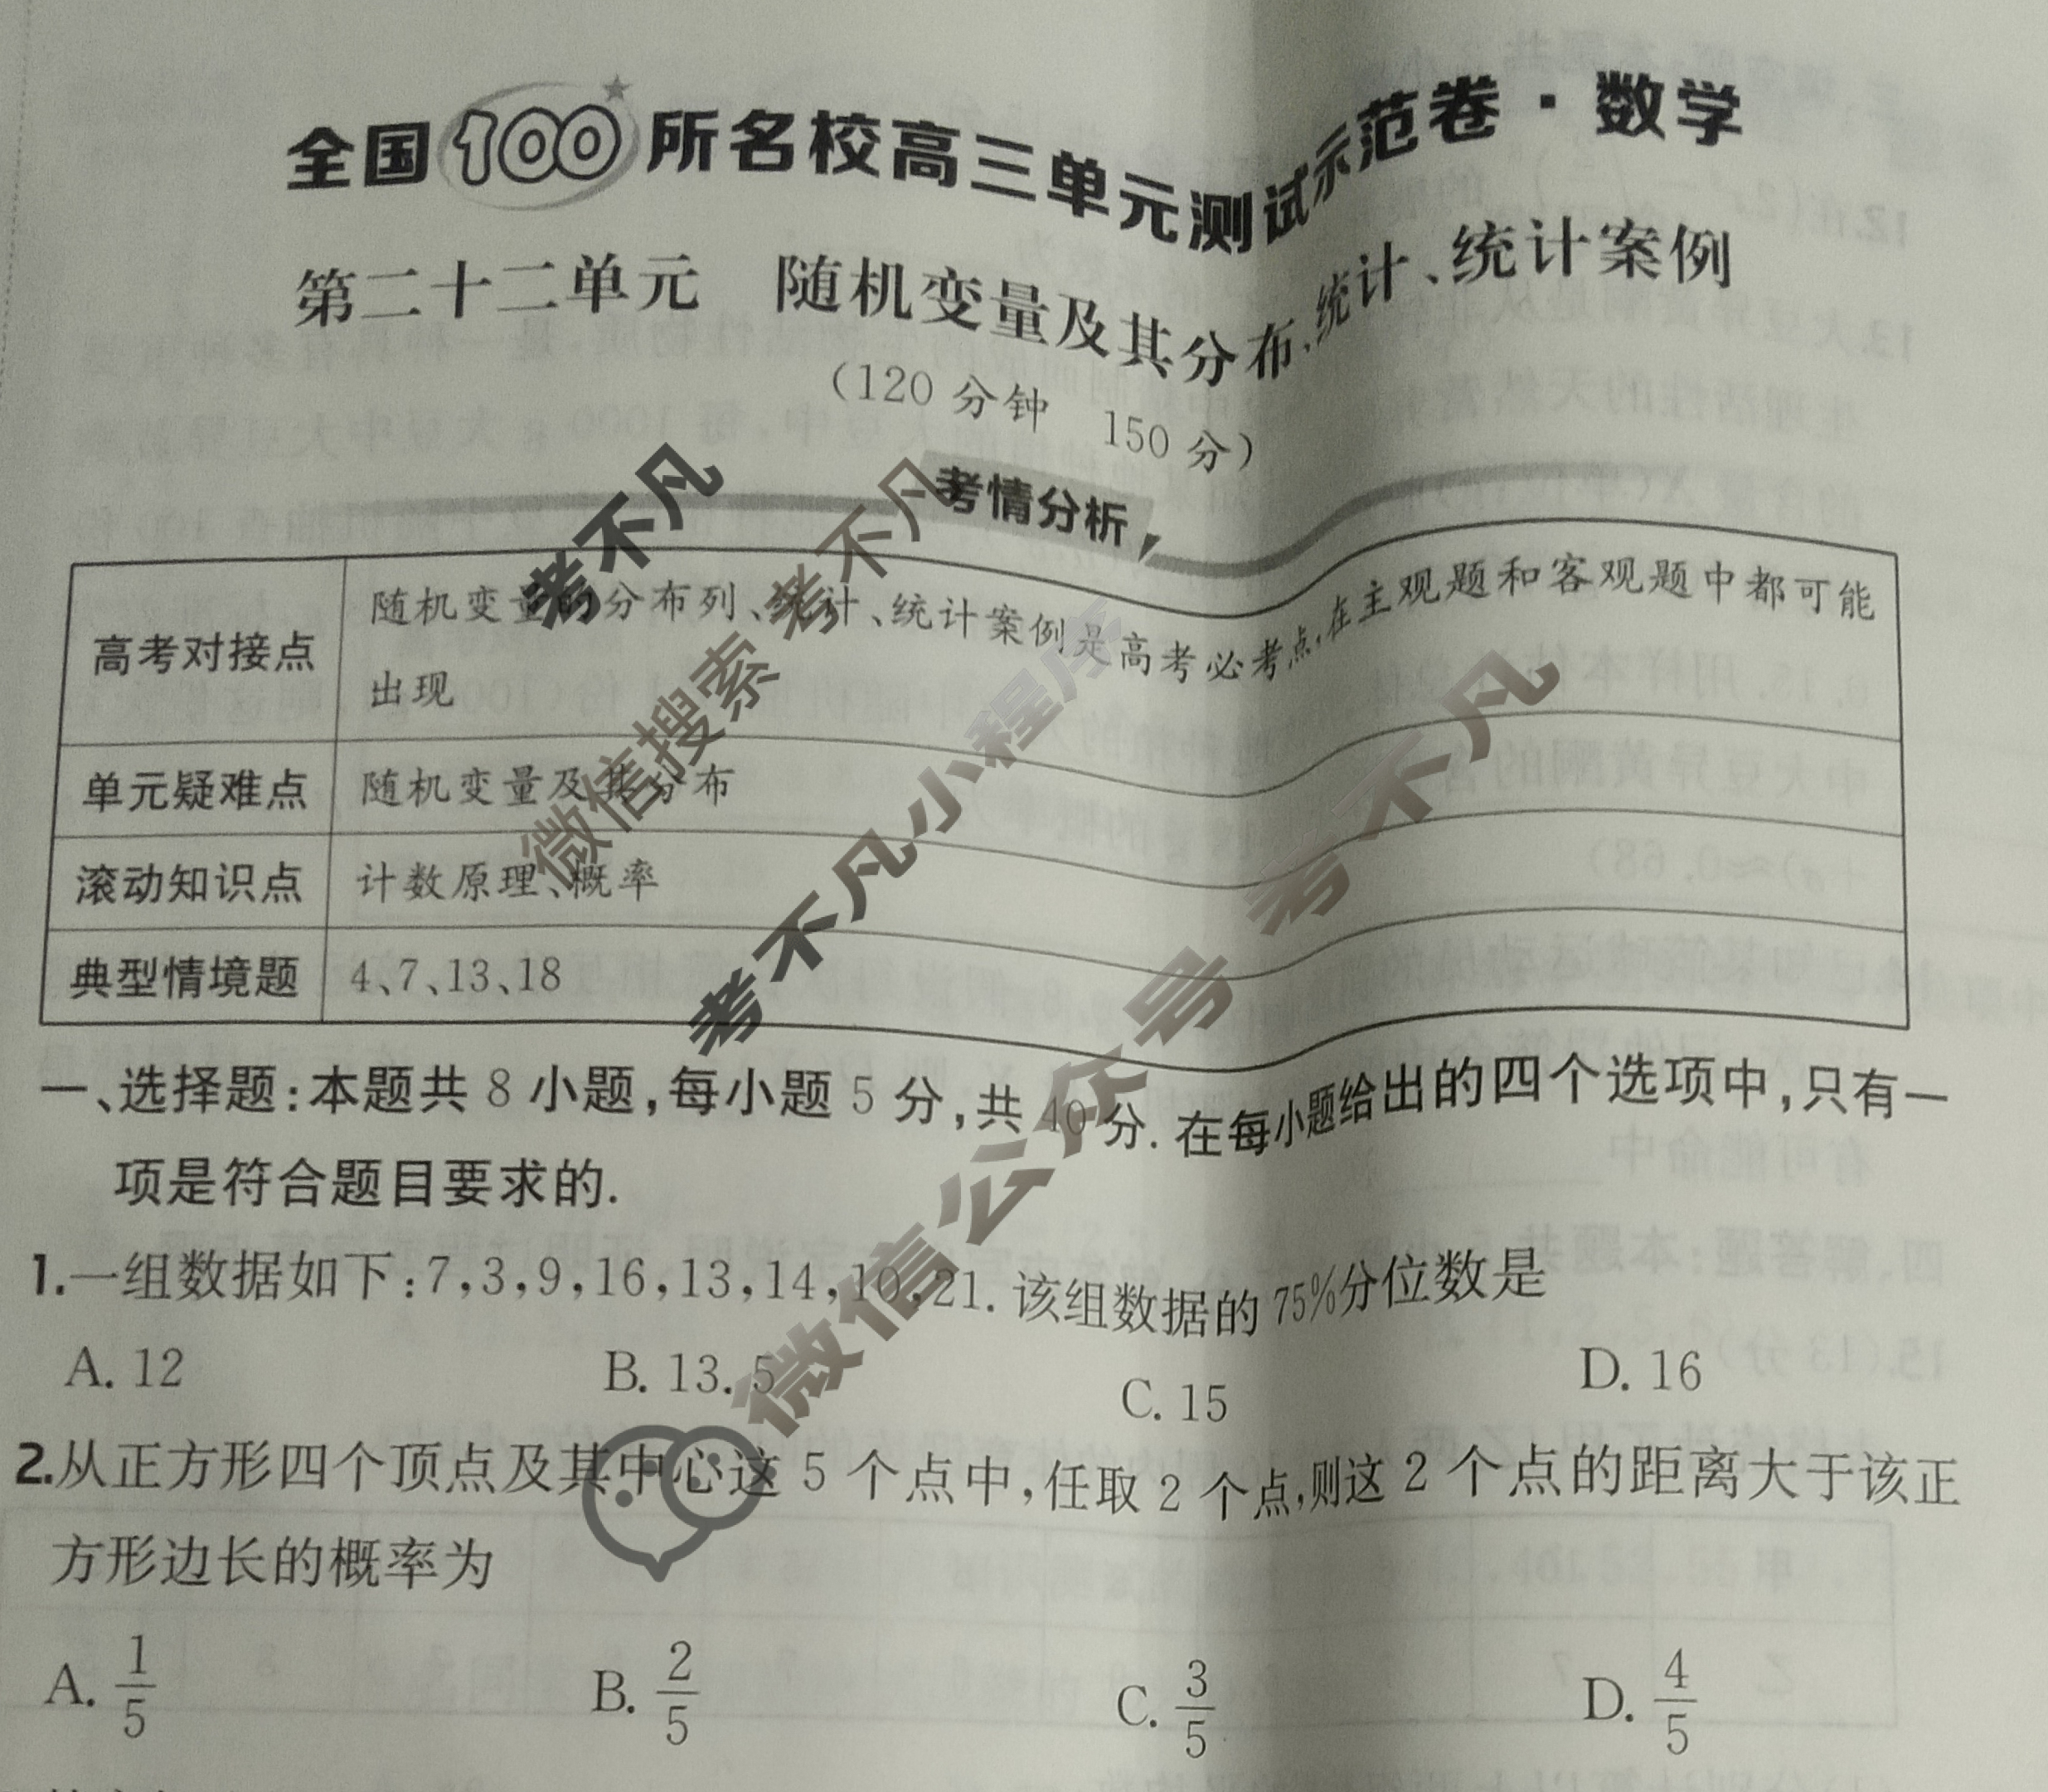 全国100所名校高三单元测试示范卷·数学
第二十二单元　随机变量及其分布、统计、统计案例
（120分钟　150分）
考情分析
高考对接点　随机变量的分布列、统计、统计案例是高考必考点,在主观题和客观题中都可能
出现
单元疑难点　随机变量及其分布
滚动知识点　计数原理、概率
典型情境题　4、7、13、18
一、选择题:本题共8小题,每小题5分,共40分.在每小题给出的四个选项中,只有一
项是符合题目要求的.
1.一组数据如下:7,3,9,16,13,14,10,21.该组数据的75%分位数是
A. 12　B. 13.5　C. 15　D. 16
2.从正方形四个顶点及其中心这5个点中,任取2个点,则这2个点的距离大于该正
方形边长的概率为
A. 1/5　B. 2/5　C. 3/5　D. 4/5
考不凡
微信搜索 考不凡
考不凡小程序
微信公众号 考不凡